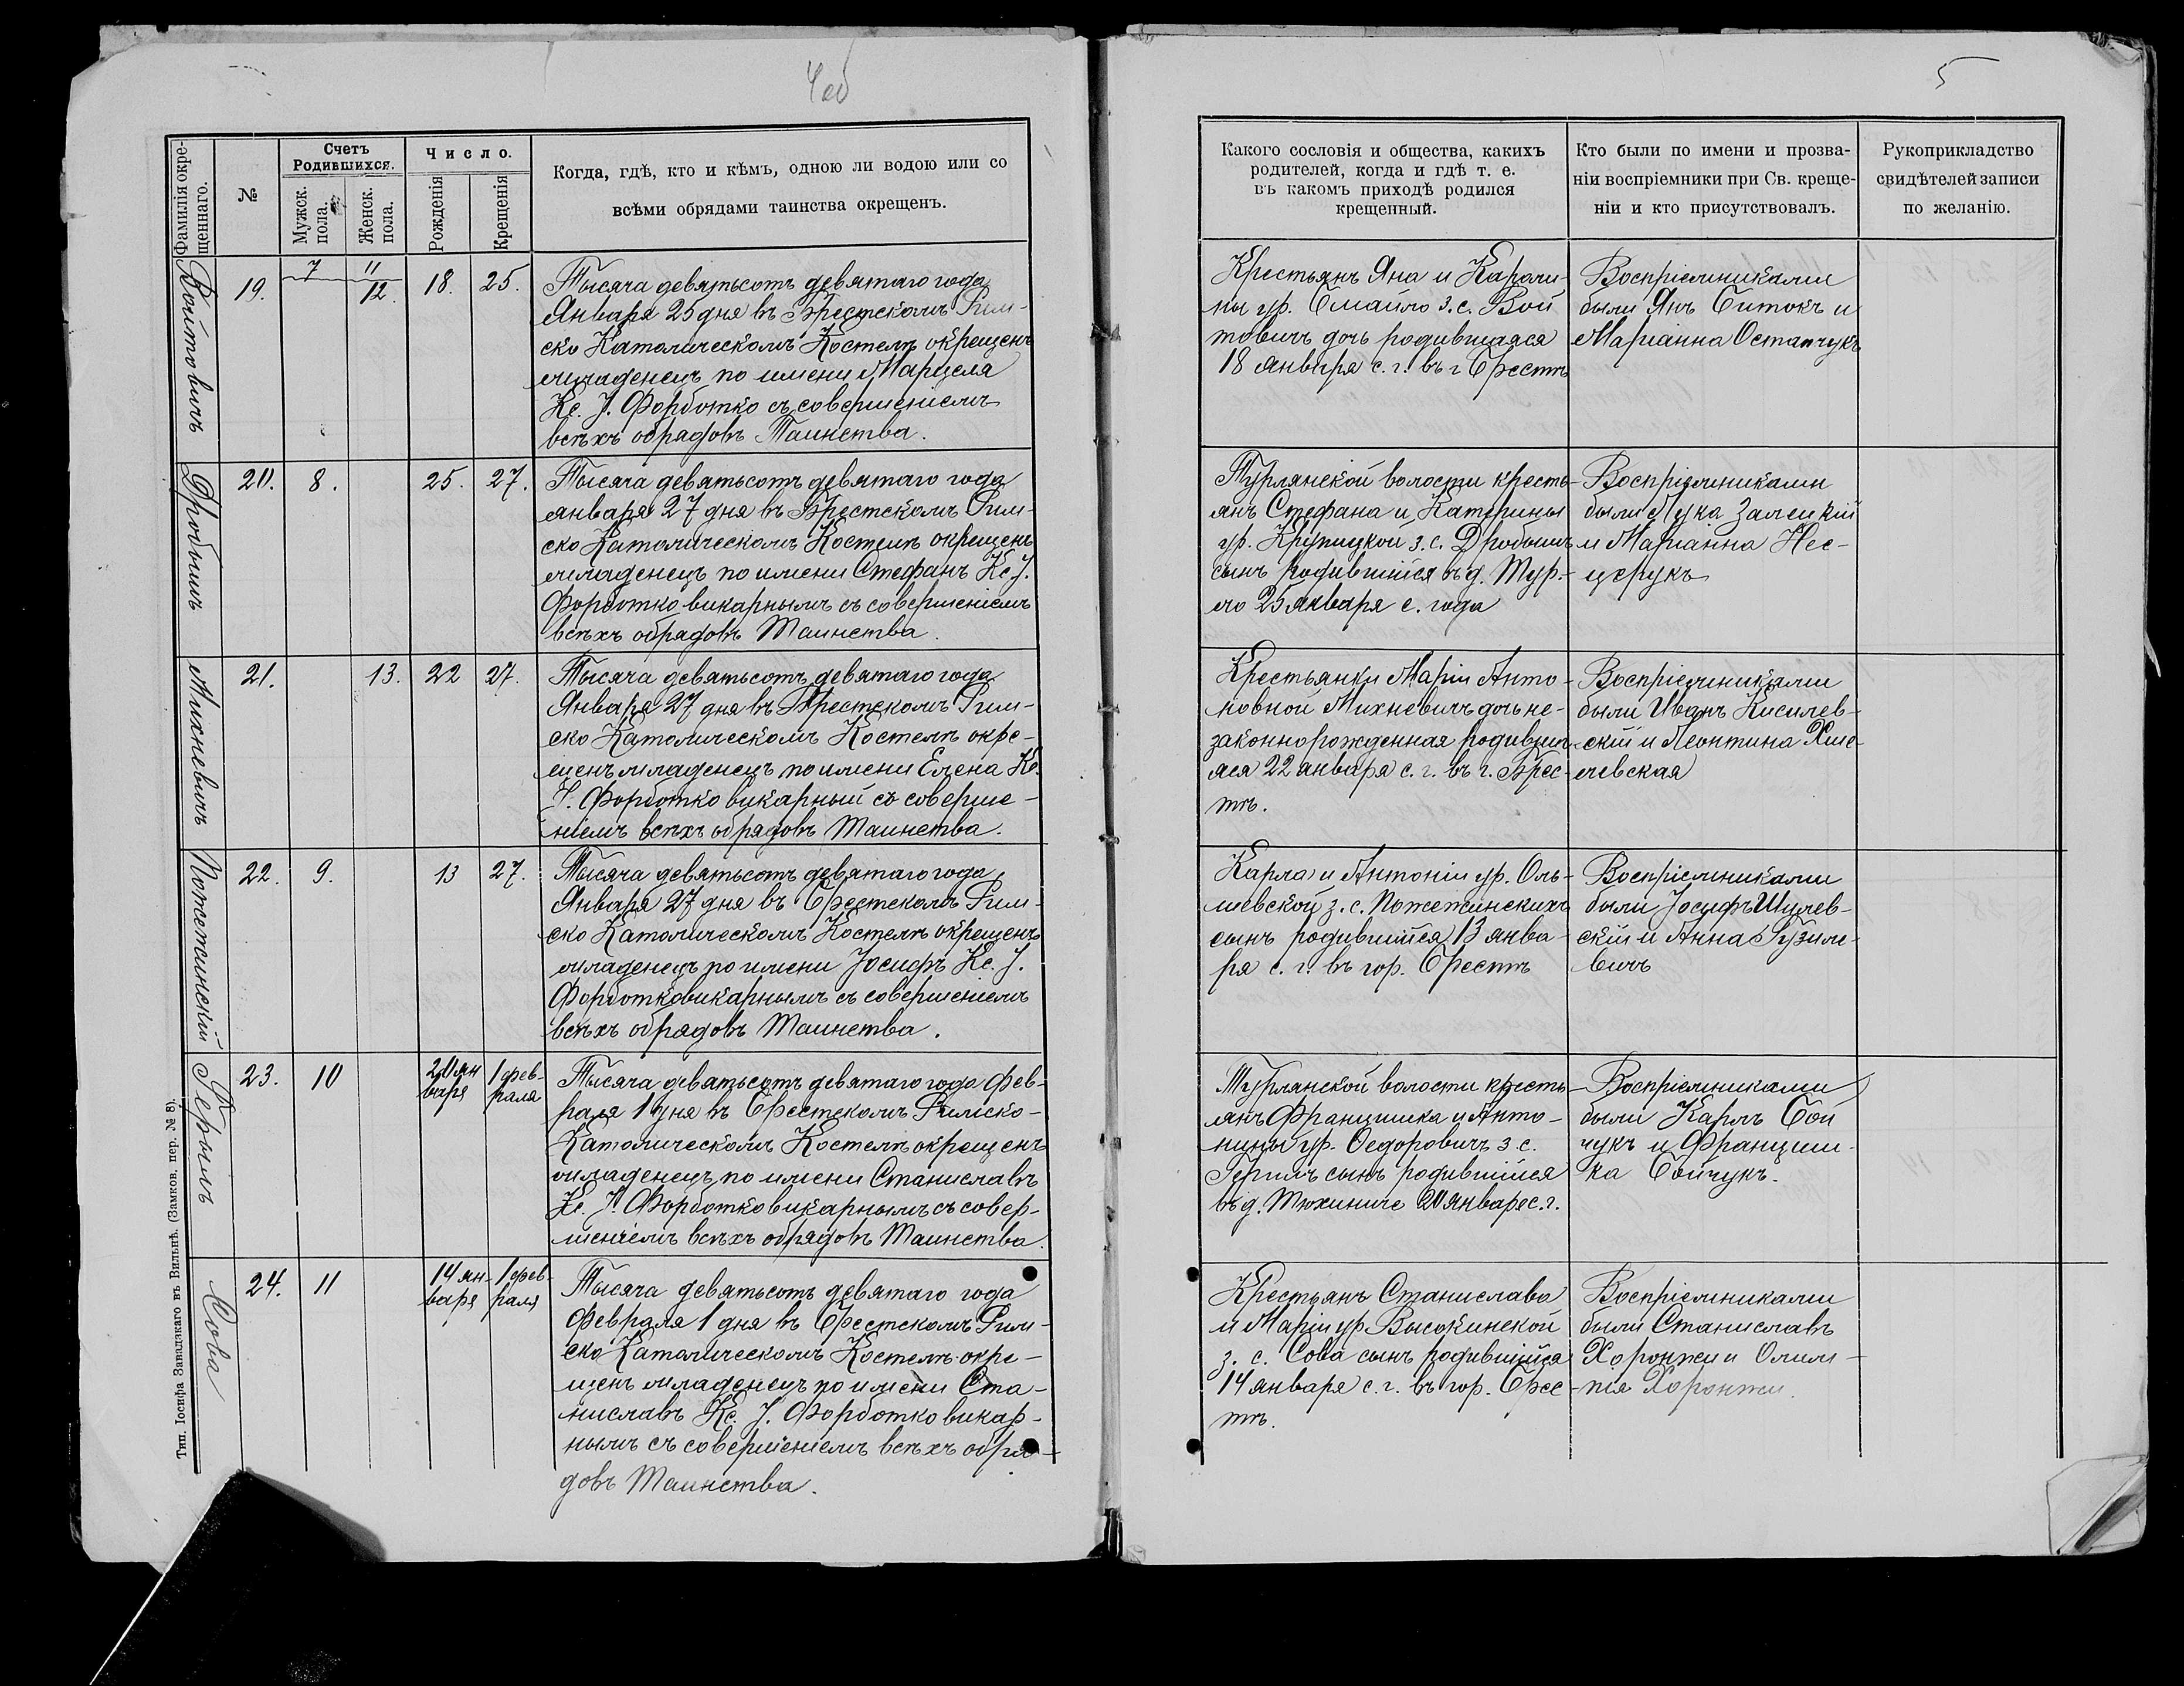 4об
5
Фамилія окре-
щеннаго.
№
Счетъ
Родившихся.
Мужск.
пола.
Женск.
пола.
Число.
Рожденія
Крещенія
Когда, гдѣ, кто и кѣмъ, одною ли водою или со
всѣми обрядами таинства окрещенъ.
Какого сословія и общества, какихъ
родителей, когда и гдѣ т. е.
въ какомъ приходѣ родился
крещенный.
Кто были по имени и прозва-
ніи воспріемники при Св. креще-
ніи и кто присутствовалъ.
Рукоприкладство
свидѣтелей записи
по желанію.
Войтовичъ
19.
7
11
12.
18.
25.
Тысяча девятьсотъ девятаго года
Января 25 дня въ Брестскомъ Рим-
ско Католическомъ Костелѣ окрещенъ
младенецъ по имени Марцеля
Кс. J. Форботко съ совершеніемъ
всѣхъ обрядовъ Таинства.
Крестьянъ Яна и Кароли-
ны ур. Смайло з. с. Вой
товичъ дочь родившаяся
18 января с. г. въ г Брестѣ
Воспріемниками
были Янъ Ситокъ и
Маріанна Остапчукъ
Дробышъ
20.
8.
25.
27.
Тысяча девятьсотъ девятаго года
января 27 дня въ Брестскомъ Рим-
ско Католическомъ Костелѣ окрещенъ
младенецъ по имени Стефанъ Кс. J.
Форботко викарнымъ съ совершеніемъ
всѣхъ обрядовъ Таинства.
Турлянской волости кресть-
янъ Стефана и Катерины
ур. Крупицкой з. с. Дробышъ
сынъ родившійся въ д. Тур-
но 25 января с. года
Воспріемниками
были Лука Залецкій
и Маріанна Нес-
церукъ
Михневичъ
21.
13.
22
27.
Тысяча девятьсотъ девятаго года
Января 27 дня въ Брестскомъ Рим-
ско Католическомъ Костелѣ окре-
щенъ младенецъ по имени Елена Кс.
J. Форботко викарный съ соверше-
ніемъ всѣхъ обрядовъ Таинства.
Крестьянки Маріи Анто-
новной Михневичъ дочь не-
законнорожденная родивша-
яся 22 января с. г. въ г. Брес-
тѣ.
Воспріемниками
были Иванъ Кисилев-
скій и Леонтина Хме-
левская
Пожежинскій
22.
9.
13
27.
Тысяча девятьсотъ девятаго года
Января 27 дня въ Брестскомъ Рим-
ско Католическомъ Костелѣ окрещенъ
младенецъ по имени Iосифъ Кс. J.
Форботко викарнымъ съ совершеніемъ
всѣхъ обрядовъ Таинства.
Карла и Антоніи ур. Оль-
шевской з. с. Пожежинскихъ
сынъ родившійся 13 янва-
ря с. г. въ гор. Брестѣ
Воспріемниками
были Iосифъ Шулев-
скій и Анна
вичъ
Герымъ
23.
10
20 ян
варя
1 фев-
раля
Тысяча девятьсотъ девятаго года Фев-
раля 1 дня въ Брестскомъ Римско-
Католическомъ Костелѣ окрещенъ
младенецъ по имени Станиславъ
Кс. J. Форботко викарнымъ съ совер-
шеніемъ всѣхъ обрядовъ Таинства.
Турлянской волости кресть
янъ Францишка и Анто-
нины ур. Федоровичъ з. с.
Герымъ сынъ родившійся
въ д. Тюхиниче 20 января с. г.
Воспріемниками
были Карлъ Бой
чукъ и Франциш-
ка Бойчукъ.
Сова
24.
11
14 ян-
варя
1 фев-
раля
Тысяча девятьсотъ девятаго года
Февраля 1 дня въ Брестскомъ Рим-
ско Католическомъ Костелѣ окре-
щенъ младенецъ по имени Ста-
ниславъ Кс. J. Форботко викар-
нымъ съ совершеніемъ всѣхъ обря-
довъ Таинства.
Крестьянъ Станислава
и Маріи ур. Высокинской
з. с. Сова сынъ родившійся
14 января с. г. въ гор. Брес-
тѣ.
Воспріемниками
были Станиславъ
Хоронжи и Олим-
пія Хоронжи.
Тип. Іосифа Завадзкаго въ Вильнѣ. (Замков. пер. № 8).